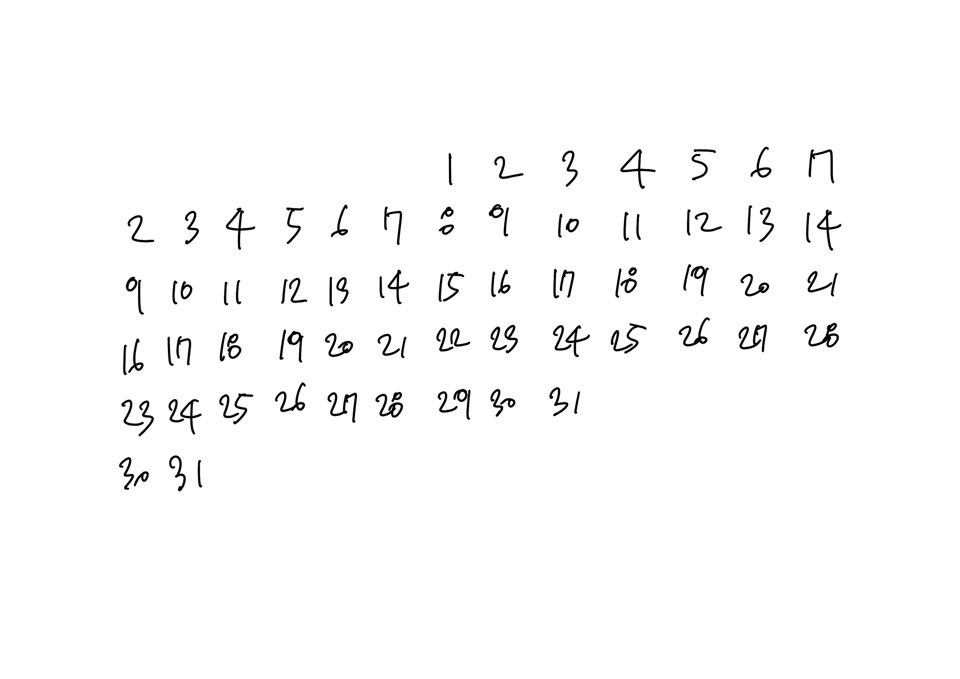 1 2 3 4 5 6 7
2 3 4 5 6 7 8 9 10 11 12 13 14
9 10 11 12 13 14 15 16 17 18 19 20 21
16 17 18 19 20 21 22 23 24 25 26 27 28
23 24 25 26 27 28 29 30 31
30 31